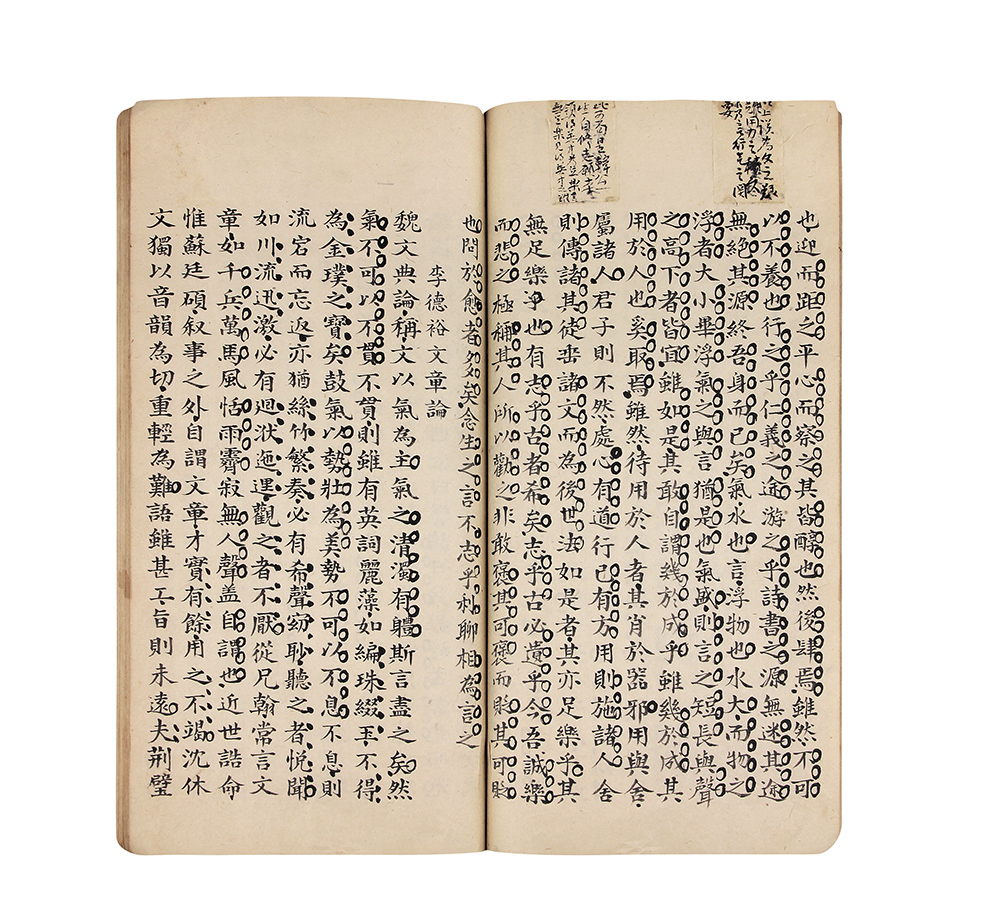 也迎而距之平心而察之其皆醇也然後肆焉雖然不可
以不養也行之乎仁義之途游之乎詩書之源無迷其途
無絕其源終吾身而已矣氣水也言浮物也水大而物之
浮者大小畢浮氣之與言猶是也氣盛則言之短長與聲
之高下者皆宜雖如是其敢自謂幾於成乎雖幾於成其
用於人也奚取焉雖然待用於人者其肖於器邪用與舍
屬諸人君子則不然處心有道行己有方用則施諸人舍
則傳諸其徒垂諸文而為後世法如是者其亦足樂乎其
無足樂乎也有志乎古者希矣志乎古必遺乎今吾誠樂
而悲之極稱其人所以勸之非敢褒其可褒而貶其可貶
也問於愈者多矣念生之言不志乎利聊相為言之
李德裕文章論
魏文典論稱文以氣為主氣之清濁有體斯言盡之矣然
氣不可以不貫不貫則雖有英詞麗藻如編珠綴玉不得
為金璞之寶矣鼓氣以勢壯為美勢不可以不息不息則
流宕而忘返亦猶絲竹繁奏必有希聲窈眇聽之者悅聞
如川流迅激必有迴洑迤邐觀之者不厭從兄翰常言文
章如千兵萬馬風恬雨霽寂無人聲蓋自謂也近世誥命
惟蘇廷碩叙事之外自謂文章才實有餘用之不竭沈休
文獨以音韻為切重輕為難語雖甚工旨則未遠夫荆璧